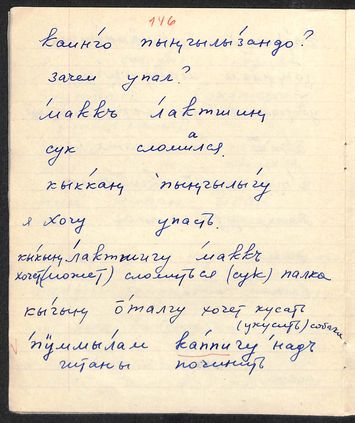 146
каинго́ пыңгылы́зандо?
зачем упал?
ма́ккъ ла́ктшиң
сук сломался.
кыккаң пыңгылы́гу
я хочу упасть.
кыкың ла́ктшигу ма́ккъ
хочет (может) сломиться (сук) палка
кы́гың о́талгу хочет кусать
(укусить) собака
пӱммы́лам ка́ппигу надъ
штаны починить